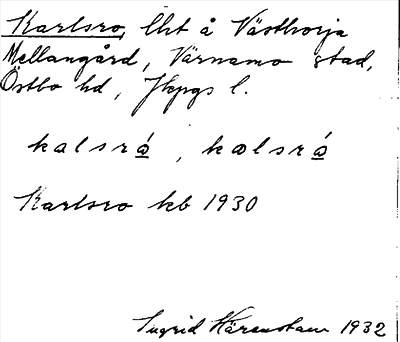 Karlsro, lht å Västhorja
Mellangård, Värnamo stad,
Östbo hd, Jkpgs l.
kalsrɷ́, kɑlsrɷ́
Karlsro kb 1930
Ingrid 1932